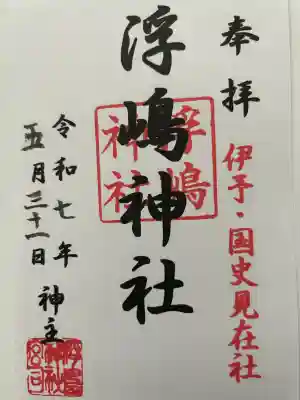 奉拝
伊予・国史見在社
浮嶋神社
浮嶋神社
令和七年
五月三十一日
神主
浮島神社宮司